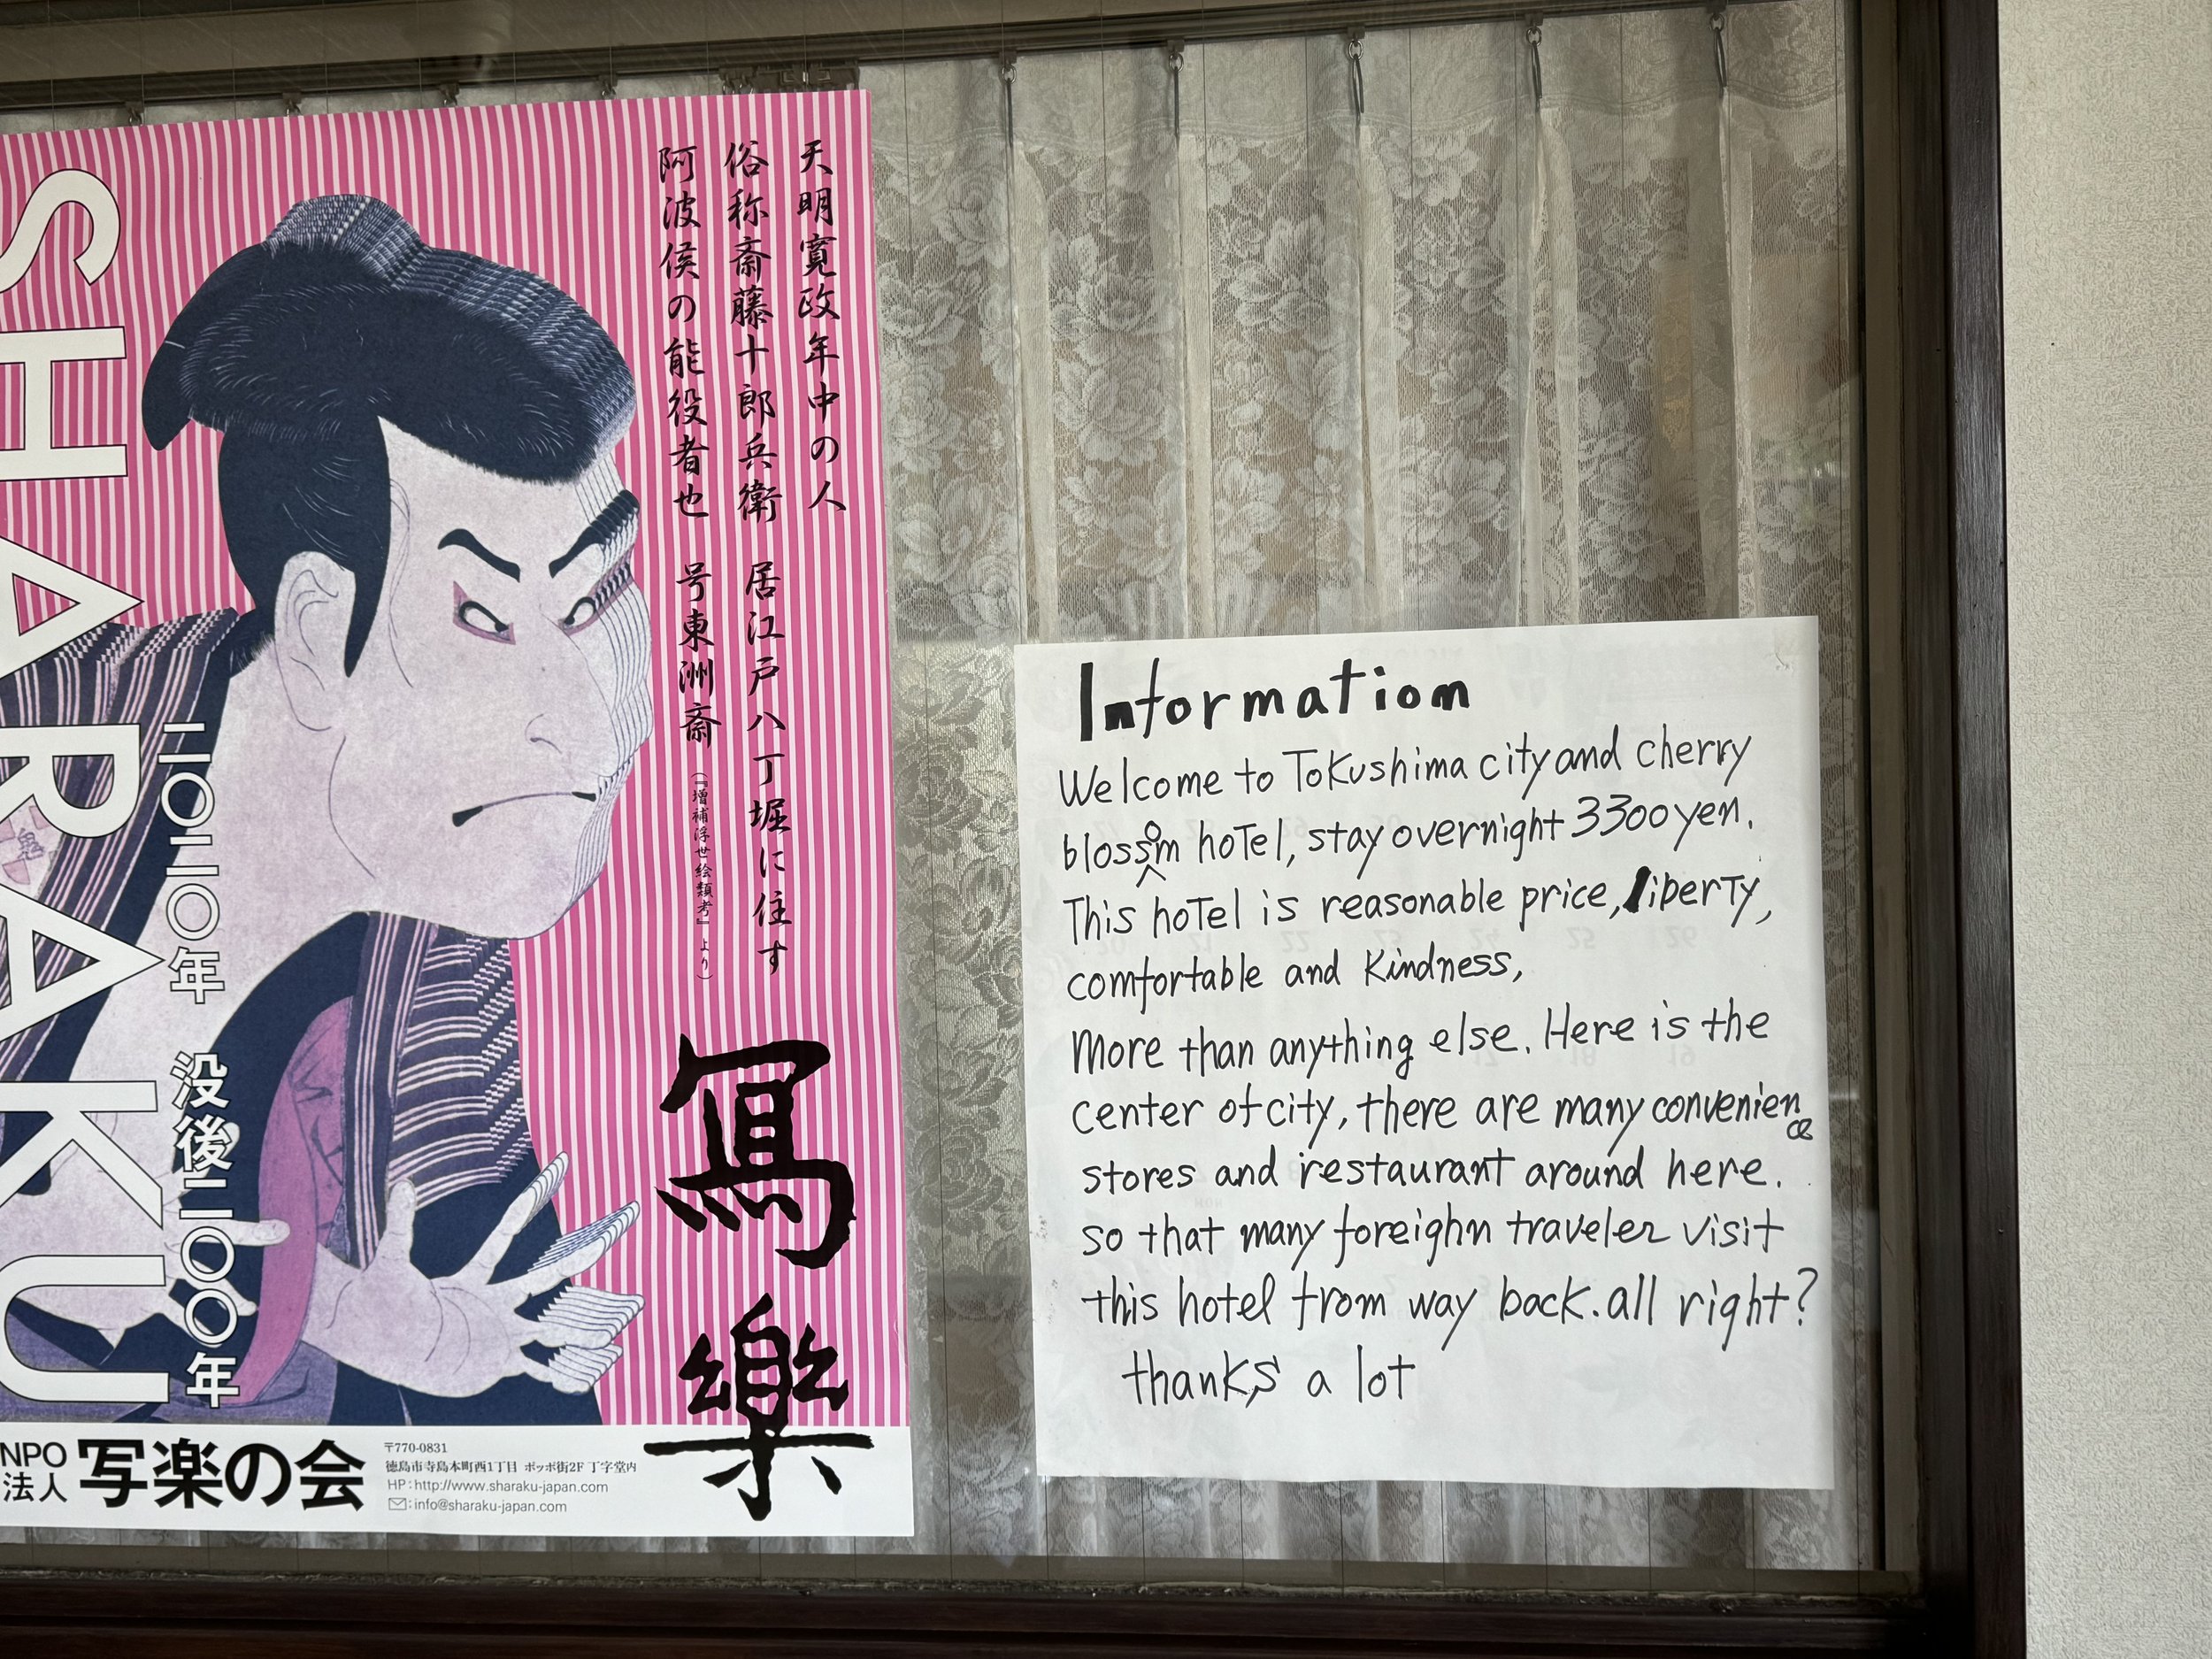 SHARAKU
天明寛政年中の人
俗称斎藤十郎兵衛 居江戸八丁堀に住す
阿波侯の能役者也 号東洲斎 (『増補浮世絵類考』より)
寫樂
二〇二〇年 没後二〇〇年
NPO
法人
写楽の会
〒770-0831
徳島市寺島本町西1丁目 ポッポ街2F 丁字堂内
HP:http://www.sharaku-japan.com
:info@sharaku-japan.com
Information
Welcome to Tokushima city and cherry
blossom hotel, stay overnight 3300yen.
This hotel is reasonable price, liberty,
comfortable and kindness,
more than anything else. Here is the
center of city, there are many convenience
stores and restaurant around here.
so that many foreighn traveler visit
this hotel from way back. all right?
thanks a lot